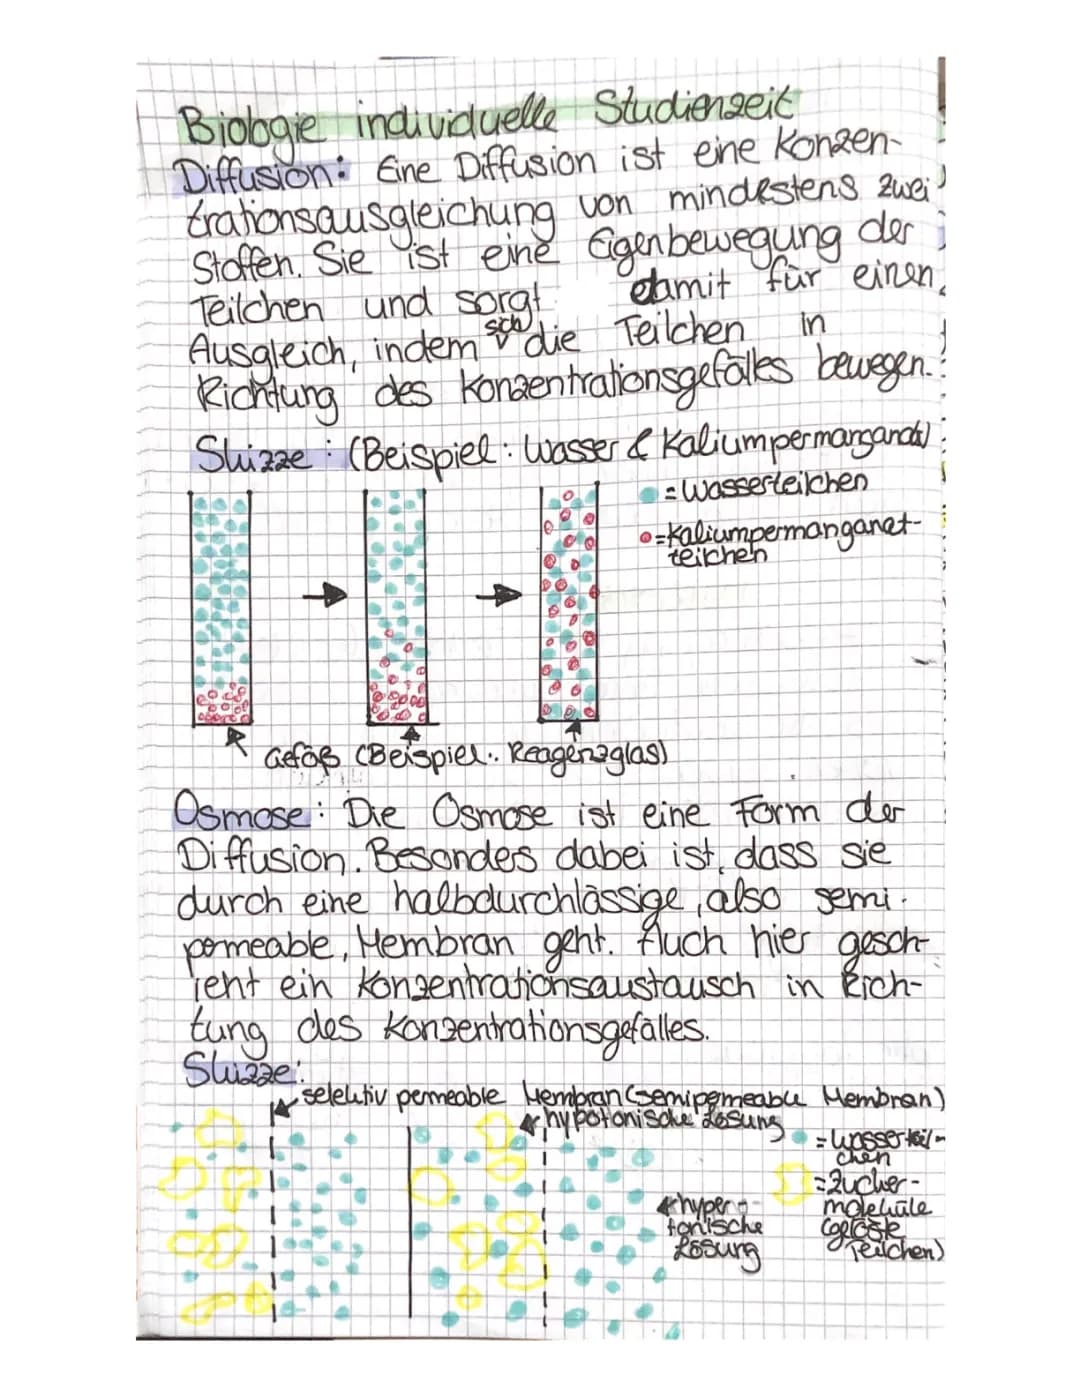 Biologie individuelle Studienzeit
Diffusion: Eine Diffusion ist eine Konzen-
trationsausgleichung von mindestens zwei
Stoffen. Sie ist eine Eigenbewegung der
Teilchen und sorgt damit für einen
Ausgleich, indem sich die Teilchen in
Richtung des Konzentrationsgefälles bewegen.
Skizze: (Beispiel: Wasser & Kaliumpermanganat)
= Wasserteilchen
=Kaliumpermanganat-
teilchen
Gefäß (Beispiel: Reagenzglas)
Osmose: Die Osmose ist eine Form der
Diffusion. Besonders dabei ist, dass sie
durch eine halbdurchlässige, also semi-
permeable, Membran geht. Auch hier gesch-
ieht ein Konzentrationsaustausch in Rich-
tung des Konzentrationsgefälles.
Skizze:
selektiv permeable Membran (semipermeable Membran)
hypotonische Lösung
= Wasserteil-
chen
=Zucker-
moleküle
(gelöste
Teilchen)
hyper-
tonische
Lösung